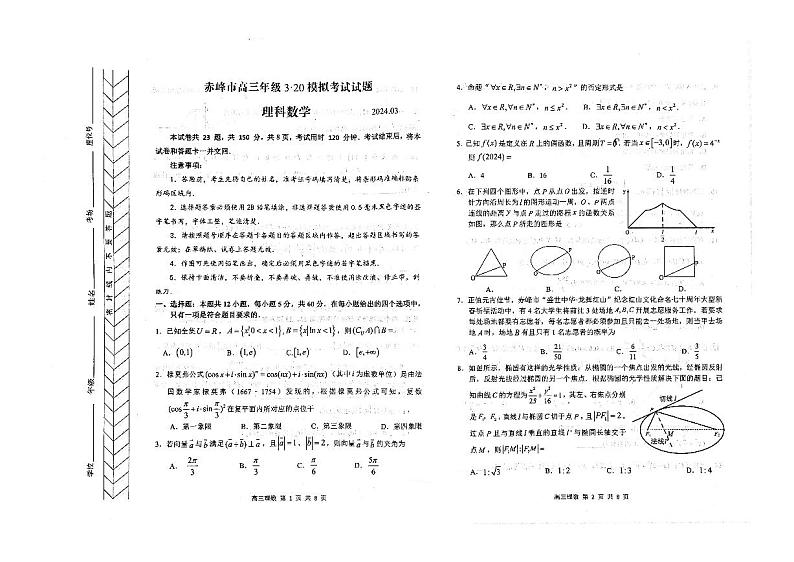 赤峰市高三年级 3·20 模拟考试试题
理科数学 2024.03
本试卷共 23 题，共 150 分，共 8 页，考试用时 120 分钟，考试结束后，将本
试卷和答题卡一并交回。
注意事项：
1．答题前，考生先将自己的姓名、准考证号码填写清楚，将条形码准确粘贴在条形
码区域内。
2．选择题答案必须使用 2B 铅笔填涂，非选择题答案使用 0.5 毫米黑色字迹的签
字笔书写，字体工整，笔迹清楚。
3．请按照题号顺序在答题卡各题目的答题区域内作答，超出答题区域书写的答
案无效；在草稿纸、试卷上答题无效。
4．作图可先使用铅笔画出，确定后必须用黑色字迹的签字笔描黑。
5．保持卡面清洁，不要折叠，不要弄破、弄皱，不准使用涂改液、修正带、刮
纸刀。
一、选择题：本题共 12 小题，每小题 5 分，共 60 分．在每小题给出的四个选项中，
只有一项是符合题目要求的．
1．已知全集 U = R，A = {x|0 < x < 1}，B = {x|ln x < 1}，则 (C_U A)∩B =
A．(0,1) B．(1,e) C．[1,e) D．[e,+∞)
2．棣莫弗公式 (cos x + i·sin x)^n = cos(nx) + i·sin(nx)（其中 i 为虚数单位）是由法
国数学家棣莫弗（1667 - 1754）发现的，根据棣莫弗公式可知，复数
(cos π/3 + i·sin π/3)^7 在复平面内所对应的点位于
A．第一象限 B．第二象限 C．第三象限 D．第四象限
3．若向量 a 与 b 满足 (a + b) ⊥ a，且 |a| = 1，|b| = 2，则向量 a 与 b 的夹角为
A．2π/3 B．π/3 C．π/6 D．5π/6
高三理数 第 1 页 共 8 页
4．命题“∀x∈R,∃n∈N*，n > x²”的否定形式是
A．∀x∈R,∀n∈N*，n ≤ x²． B．∃x∈R,∃n∈N*，n ≤ x²．
C．∃x∈R,∀n∈N*，n ≤ x²．
5．已知 f(x) 是定义在 R 上的偶函数，且周期 T = 6．若当 x∈[-3,0] 时，f(x) = 4^-x
则 f(2024) =
A．4 B．16 C．1/16 D．1/4
6．在下列四个图形中，点 P 从点 O 出发，按逆时
针方向沿周长为 l 的图形运动一周，O、P 两点
连线的距离 y 与点 P 走过的路程 x 的函数关系
如图，那么点 P 所走的图形是
7．正值元宵佳节，赤峰市“盛世中华·龙舞红山”纪念红山文化命名七十周年大型新
春祈福活动中，有 4 名大学生将前往 3 处场地 A,B,C 开展志愿服务工作．若要求
每处场地都要有志愿者，每名志愿者都必须参加且只能去一处场地，则当甲去场
地 A 时，场地 B 有且只有 1 名志愿者的概率为
A．3/4 B．21/50 C．6/11 D．3/5
8．如图所示，椭圆有这样的光学性质，从椭圆的一个焦点出发的光线，经椭圆反射
后，反射光线经过椭圆的另一个焦点．根据椭圆的光学性质解决下面的题目：已
知曲线 C 的方程为 x²/25 + y²/16 = 1，其左、右焦点分别
是 F₁，F₂，直线 l 与椭圆 C 切于点 P，且 |PF₁| = 2，
过点 P 且与直线 l 垂直的直线 l′ 与椭圆长轴交于
点 M，则 |F₁M|:|F₂M| =
切线 l
法线 l′
A．1:√3 B．1:2 C．1:3 D．1:4
高三理数 第 2 页 共 8 页
座位号
考场
姓名
年级
学校
密封线内不要答题